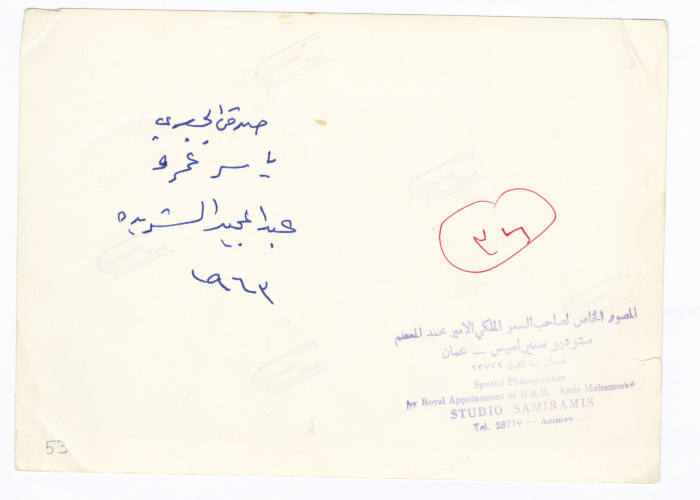 صدقي الجعبري
ياسر عمرو
عبد المجيد الشريده
١٩٦٣
٣٤
المصور الخاص لصاحب السمو الملكي الامير محمد المعظم
ستوديو سميراميس — عمان
عمان — تلفون ٢٣٧٧٩
Special Photographer
by Royal Appointment of H.R.H. Amir Muhammad
STUDIO SAMIRAMIS
Tel. 28779 — Amman
53